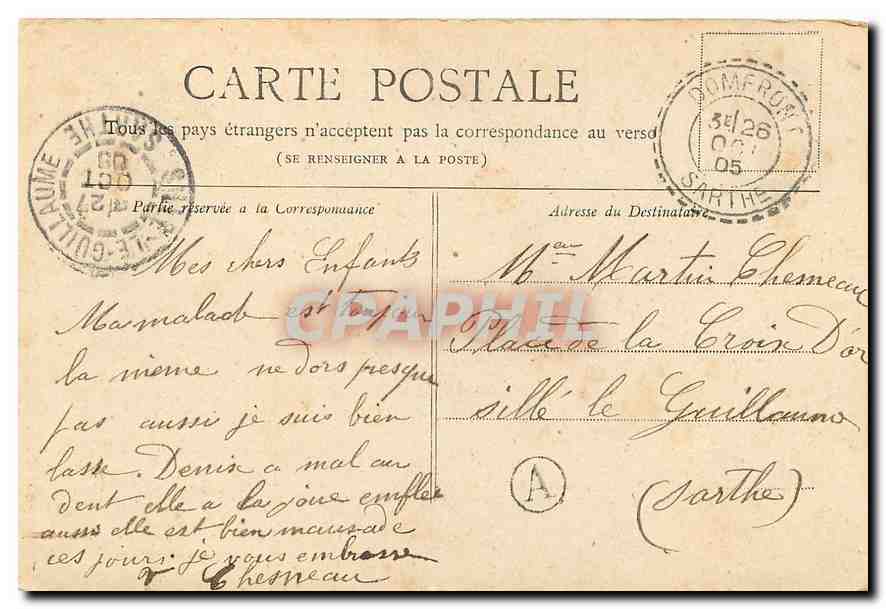 CARTE POSTALE
Tous les pays étrangers n'acceptent pas la correspondance au verso
(SE RENSEIGNER A LA POSTE)
DOMFRONT
3E/26
OCT
05
SARTHE
SILLÉ-LE-GUILLAUME
SARTHE
27
OCT
05
Partie réservée a la Correspondance
Adresse du Destinataire
Mes chers Enfants
Ma malade est toujour
la meme ne dors presque
pas aussi je suis bien
lasse. Denise a mal au
dent elle a la joue enflee
aussi elle est bien mausade
ces jours. je vous embrasse
Chesneau
Martin Chesneau
Place de la Croix D'or
sillé le Guillaume
(Sarthe)
A
CPAPHIL